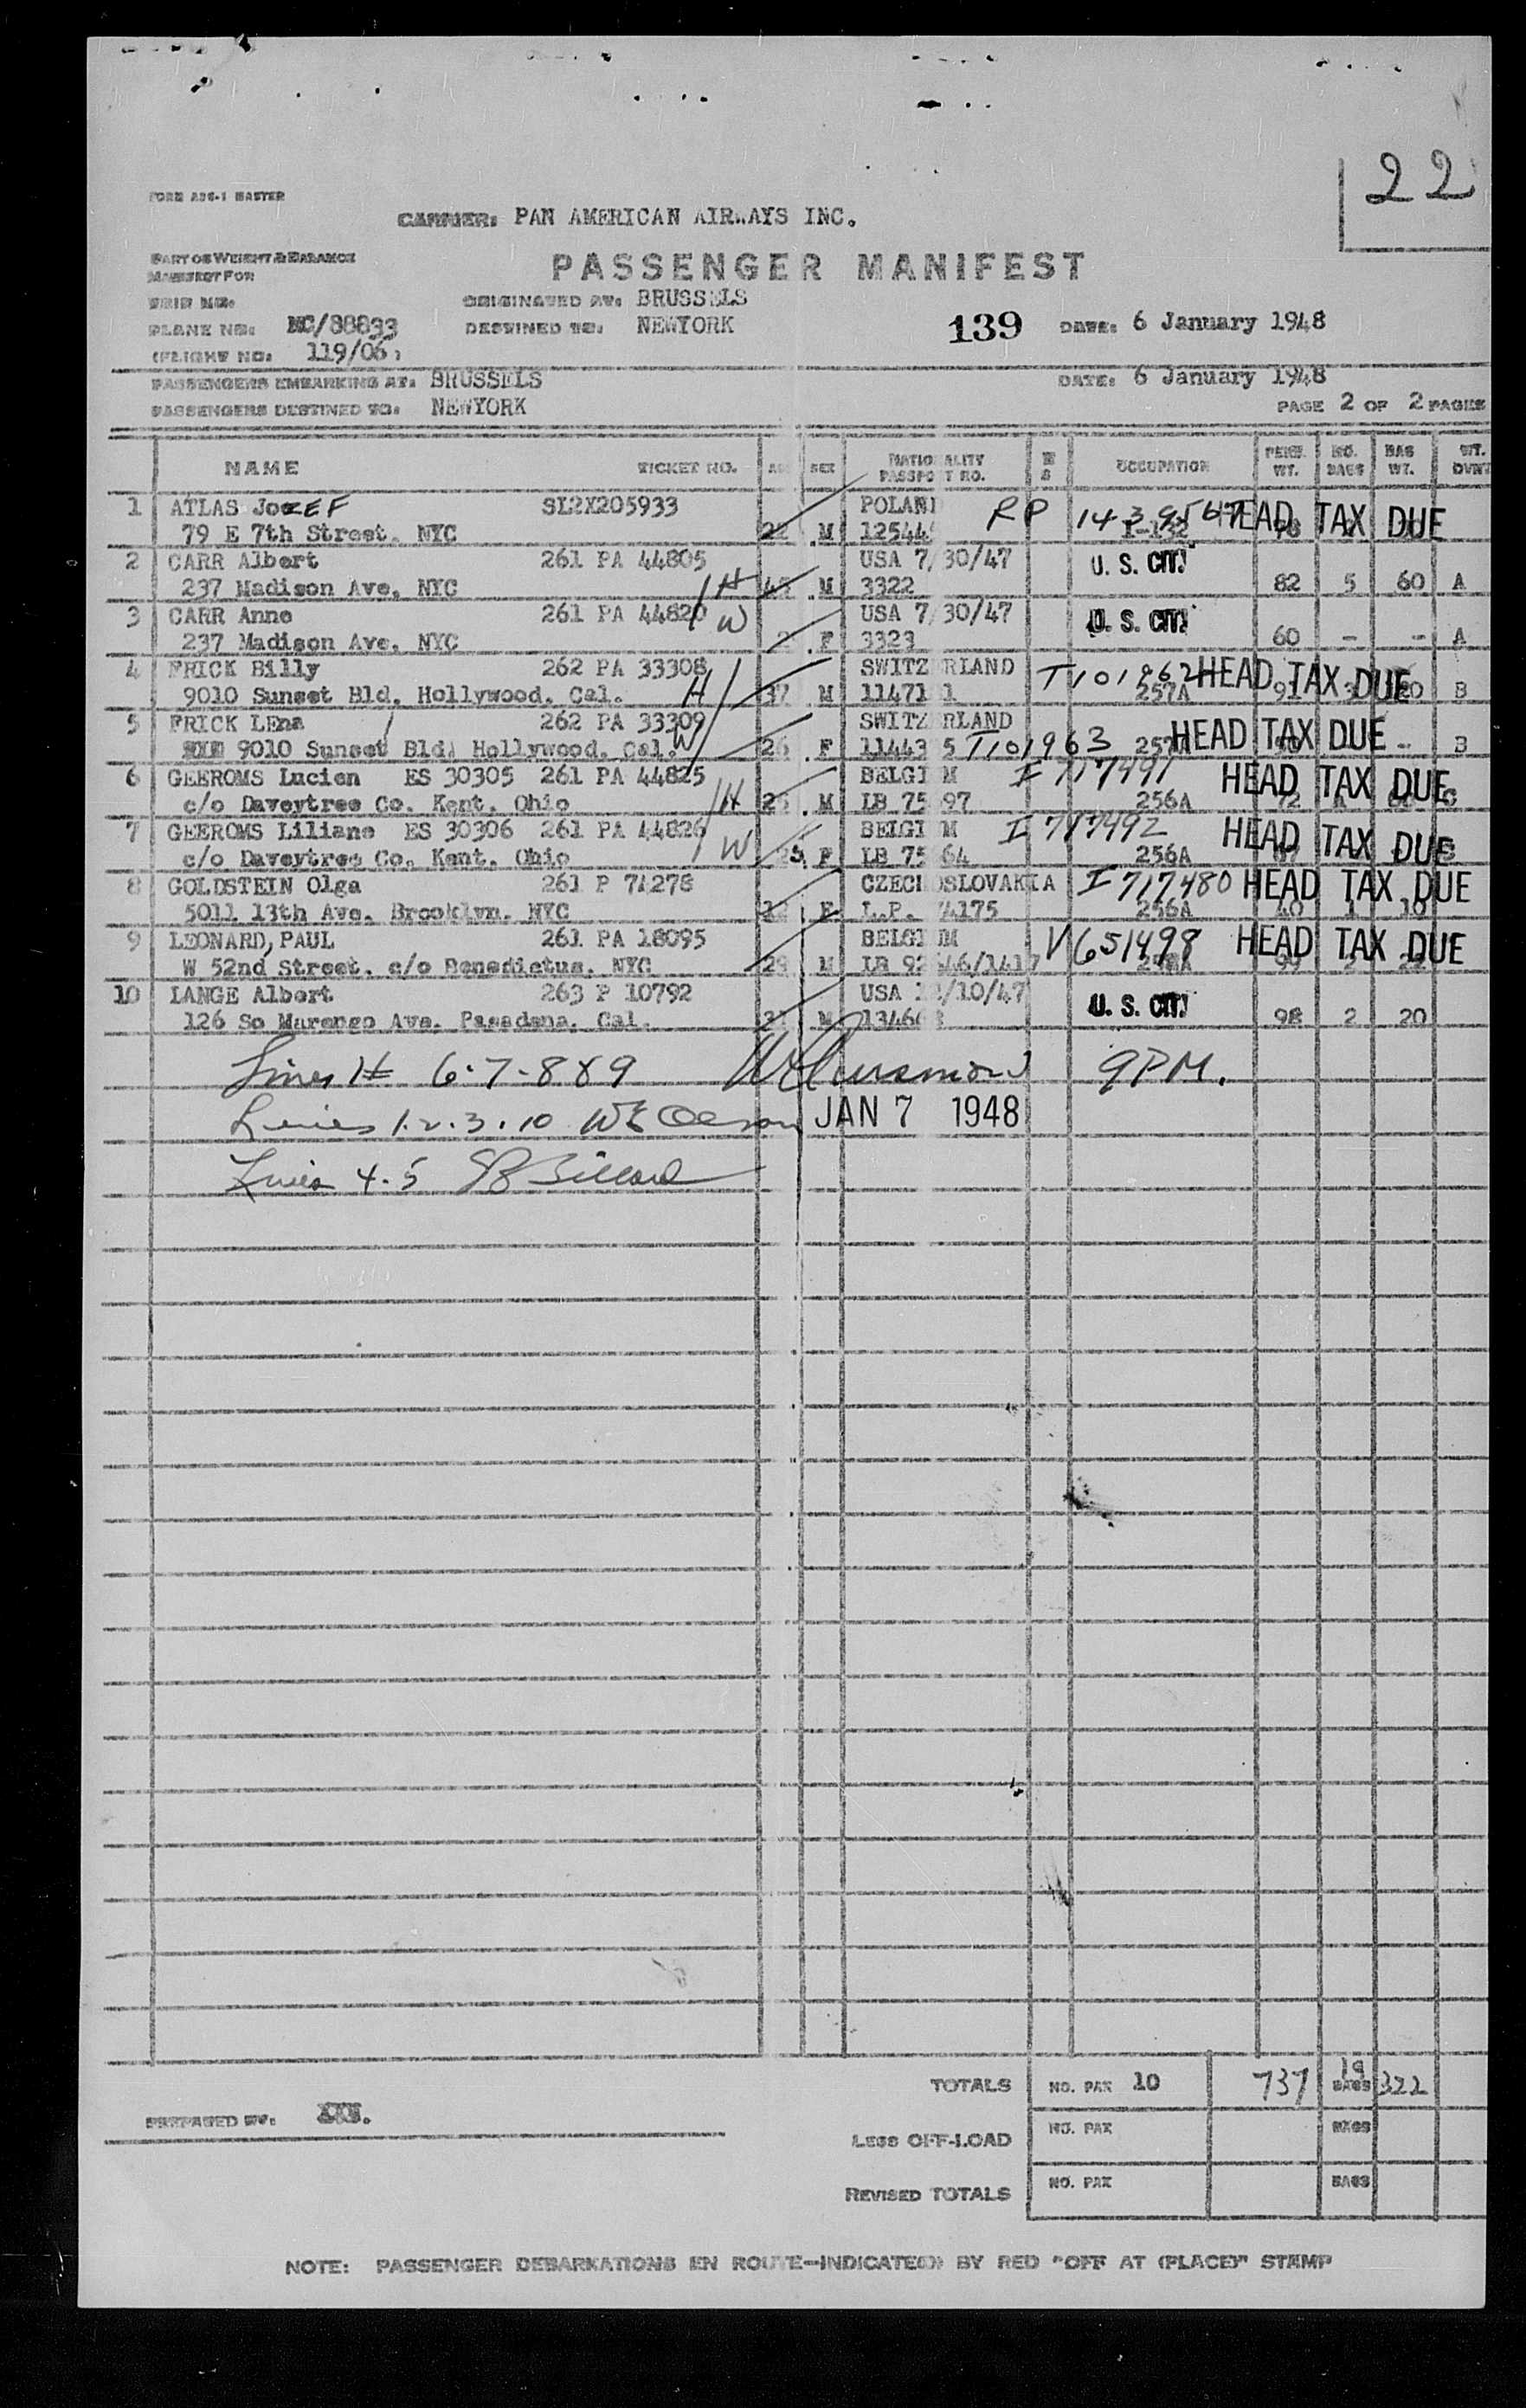 22
FORM A96-1 MASTER
CARRIER: PAN AMERICAN AIRWAYS INC.
PART OF WEIGHT & BALANCE
MANIFEST FOR
PASSENGER MANIFEST
TRIP NO:
ORIGINATED AT: BRUSSELS
PLANE NO: NC/88833
DESTINED TO: NEWYORK
139 DATE: 6 January 1948
(FLIGHT NO: 119/06)
PASSENGERS EMBARKING AT: BRUSSELS
DATE: 6 January 1948
PASSENGERS DESTINED TO: NEWYORK
PAGE 2 OF 2 PAGES
NAME TICKET NO. SEX NATIONALITY PASSPORT NO. OCCUPATION WT. NO. BAGS BAG WT. WT.
1 ATLAS JozEF SL2X205933 POLAND RP HEAD TAX DUE
79 E 7th Street, NYC 22 M 12544
2 CARR Albert 261 PA 44805 USA 7/30/47 U. S. CIT.
237 Madison Ave, NYC H M 3322 82 5 60 A
3 CARR Anne 261 PA 44820 W USA 7/30/47 U. S. CIT.
237 Madison Ave, NYC F 3323 60 - - A
4 FRICK Billy 262 PA 33308 SWITZERLAND T101962 HEAD TAX DUE
9010 Sunset Bld, Hollywood, Cal. H 37 M 11471 1 257A 91 3 B
5 FRICK LEna 262 PA 33309 SWITZERLAND
9010 Sunset Bld, Hollywood, Cal. W 26 F 11443 5 T101963 257A HEAD TAX DUE - B
6 GEEROMS Lucien ES 30305 261 PA 44825 BELGIUM I 717491 HEAD TAX DUE
c/o Daveytree Co. Kent, Ohio H M LB 75 97 256A
7 GEEROMS Liliane ES 30306 261 PA 44826 BELGIUM I 717492 HEAD TAX DUE
c/o Daveytree Co. Kent, Ohio W 25 F LB 75 64 256A
8 GOLDSTEIN Olga 261 P 71278 CZECHOSLOVAKIA I 717480 HEAD TAX DUE
5011 13th Ave, Brooklyn, NYC F L.P. 4175 256A 40 1 10
9 LEONARD, PAUL 261 PA 18095 BELGIUM V651498 HEAD TAX DUE
W 52nd Street, c/o Benedictus, NYC 29 M
10 LANGE Albert 263 P 10792 USA /10/47 U. S. CIT.
126 So Marengo Ave, Pasadena, Cal. M 98 2 20
Lines # 6-7-8&9 9PM.
Lines 1.2.3.10 JAN 7 1948
Lines 4-5
TOTALS NO. PAX 10 737 19 BAGS 322
PREPARED BY:
LESS OFF-LOAD NO. PAX BAGS
REVISED TOTALS NO. PAX BAGS
NOTE: PASSENGER DEBARKATIONS EN ROUTE—INDICATE(D) BY RED "OFF AT (PLACE)" STAMP